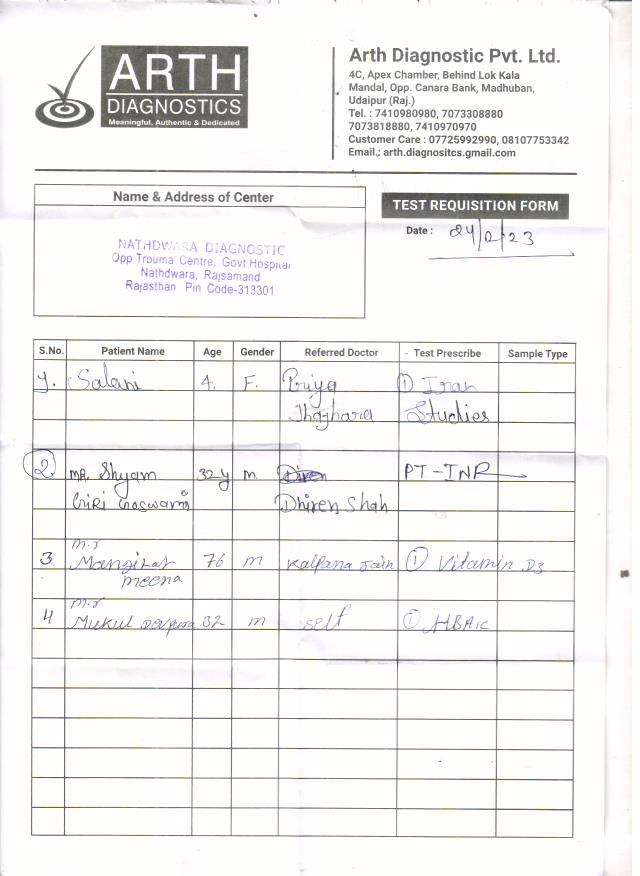 ARTH
DIAGNOSTICS
Meaningful, Authentic & Dedicated
Arth Diagnostic Pvt. Ltd.
4C, Apex Chamber, Behind Lok Kala
Mandal, Opp. Canara Bank, Madhuban,
Udaipur (Raj.)
Tel. : 7410980980, 7073308880
7073818880, 7410970970
Customer Care : 07725992990, 08107753342
Email.: arth.diagnositcs.gmail.com
Name & Address of Center
NATHDWARA DIAGNOSTIC
Opp Trouma Centre, Govt.Hospital
Nathdwara, Rajsamand
Rajasthan Pin Code-313301
TEST REQUISITION FORM
Date : 24/2/23
S.No. Patient Name Age Gender Referred Doctor Test Prescribe Sample Type
1. Salani 4. F. Priya ① Iran
Jhajhara Studies
2. MR. Shyam 32 y M. PT-INR
Giri Goswami Dhiren Shah
M.r
3 Mangilal 76 m Kalpana Jain ① Vitamin D3
meena
M.r
4 Mukul 32 m self ① HBA1C